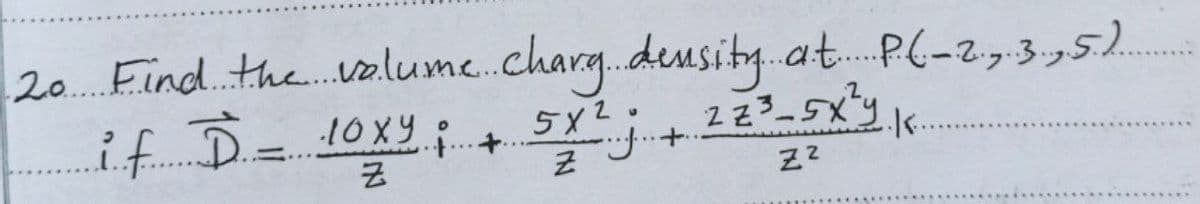 20 Find the volume charg density at P(-2,3,5)
if D⃗ = 10xy/z i + 5x²/z j + 2z³-5x²y/z² k